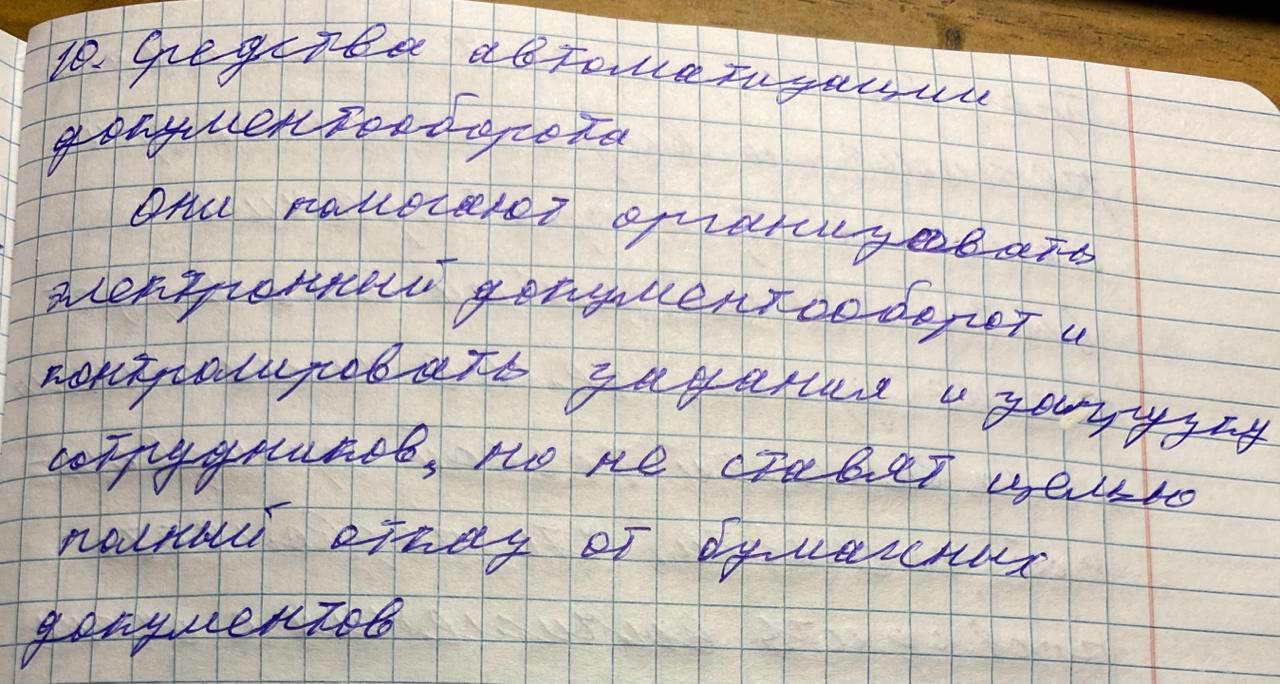 10. Средства автоматизации
документооборота
Они помогают организовать
электронный документооборот и
контролировать задания и загрузку
сотрудников, но не ставят целью
полный отказ от бумажных
документов